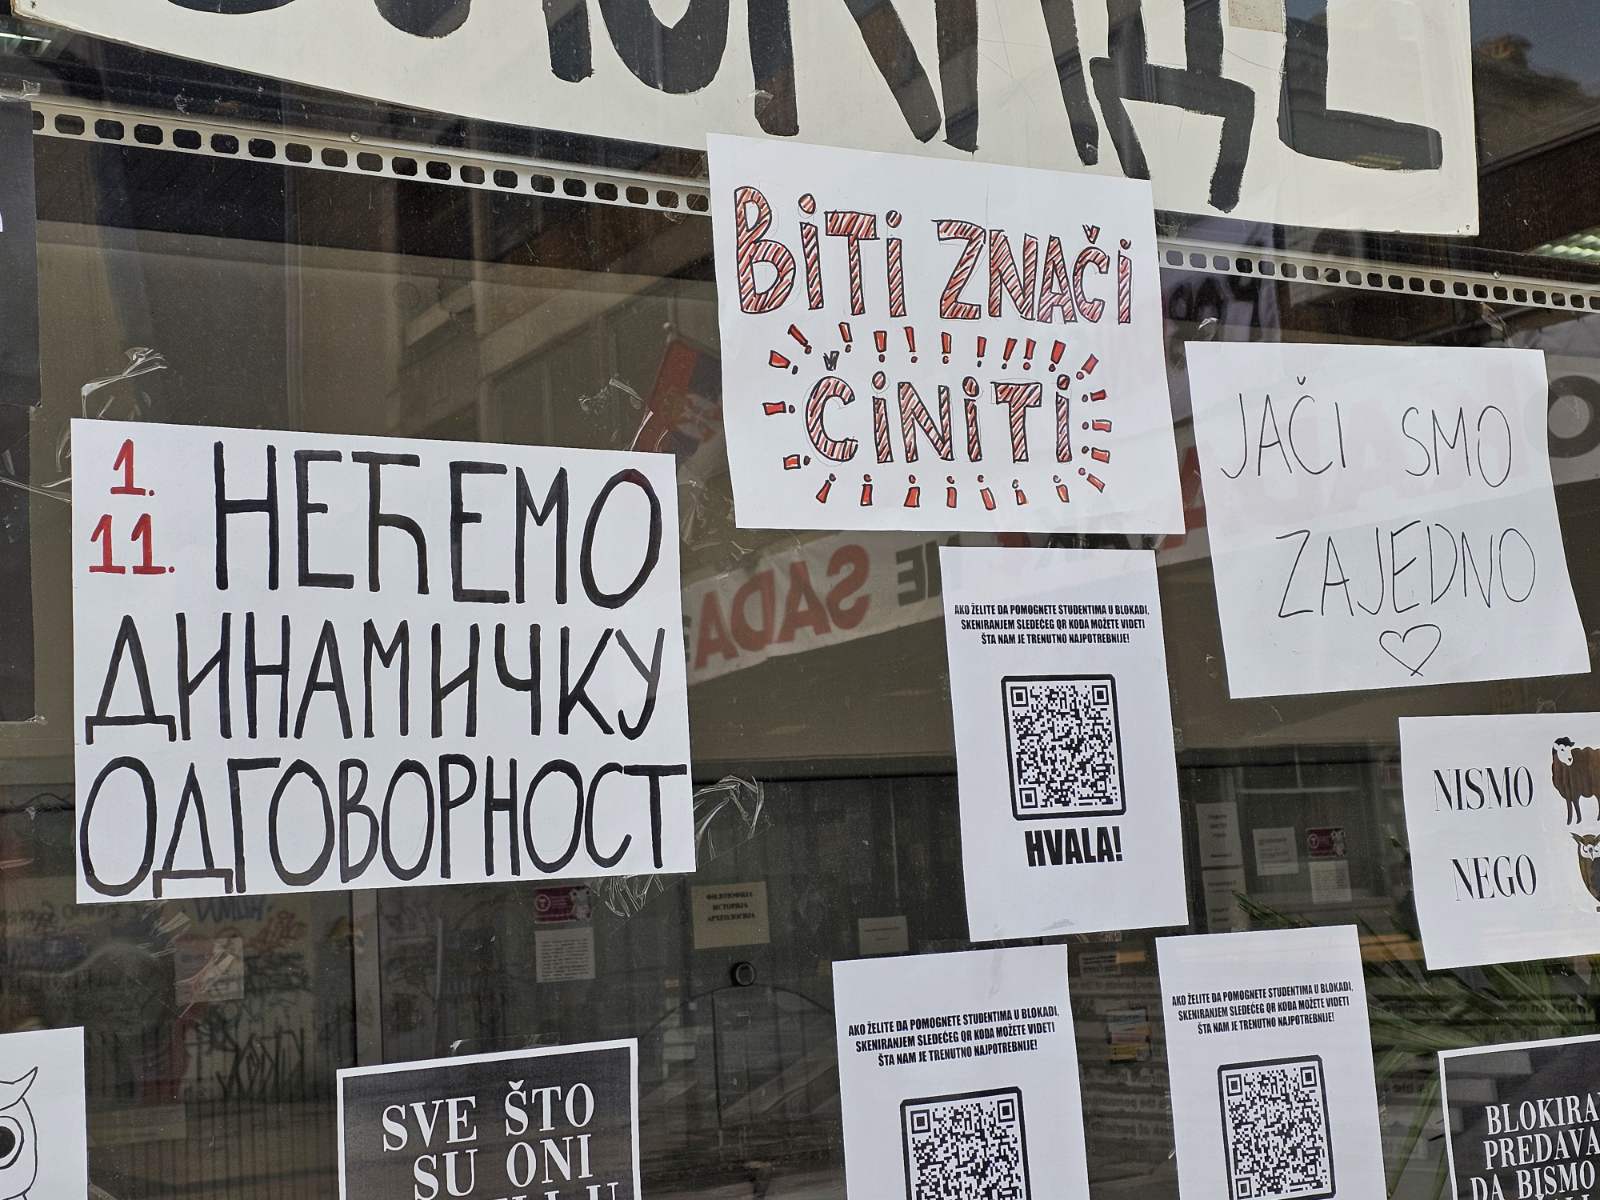 BiTi ZNAČi
ČiNiTi
1.
11.
НЕЋЕМО
ДИНАМИЧКУ
ОДГОВОРНОСТ
JAČI SMO
ZAJEDNO
AKO ŽELITE DA POMOGNETE STUDENTIMA U BLOKADI,
SKENIRANJEM SLEDEĆEG QR KODA MOŽETE VIDETI
ŠTA NAM JE TRENUTNO NAJPOTREBNIJE!
HVALA!
NISMO
NEGO
ФИЛОЗОФИЈА
ИСТОРИЈА
АРХЕОЛОГИЈА
AKO ŽELITE DA POMOGNETE STUDENTIMA U BLOKADI,
SKENIRANJEM SLEDEĆEG QR KODA MOŽETE VIDETI
ŠTA NAM JE TRENUTNO NAJPOTREBNIJE!
AKO ŽELITE DA POMOGNETE STUDENTIMA U BLOKADI,
SKENIRANJEM SLEDEĆEG QR KODA MOŽETE VIDETI
ŠTA NAM JE TRENUTNO NAJPOTREBNIJE!
SVE ŠTO
SU ONI
PREDAVA
DA BISMO